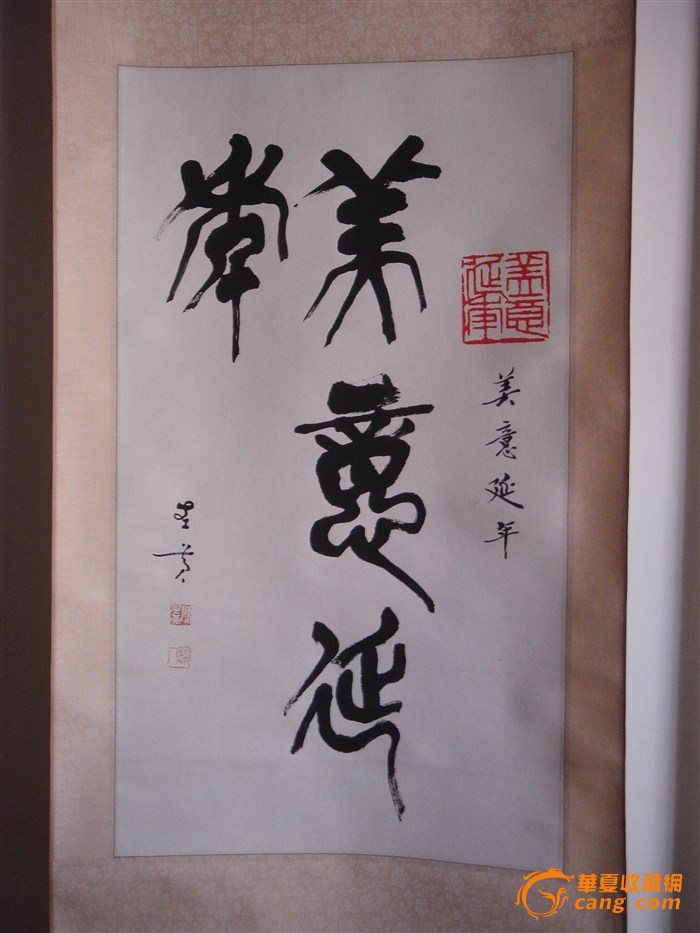 美意延
年
美意延年
美意延年
華夏收藏網
cang.com